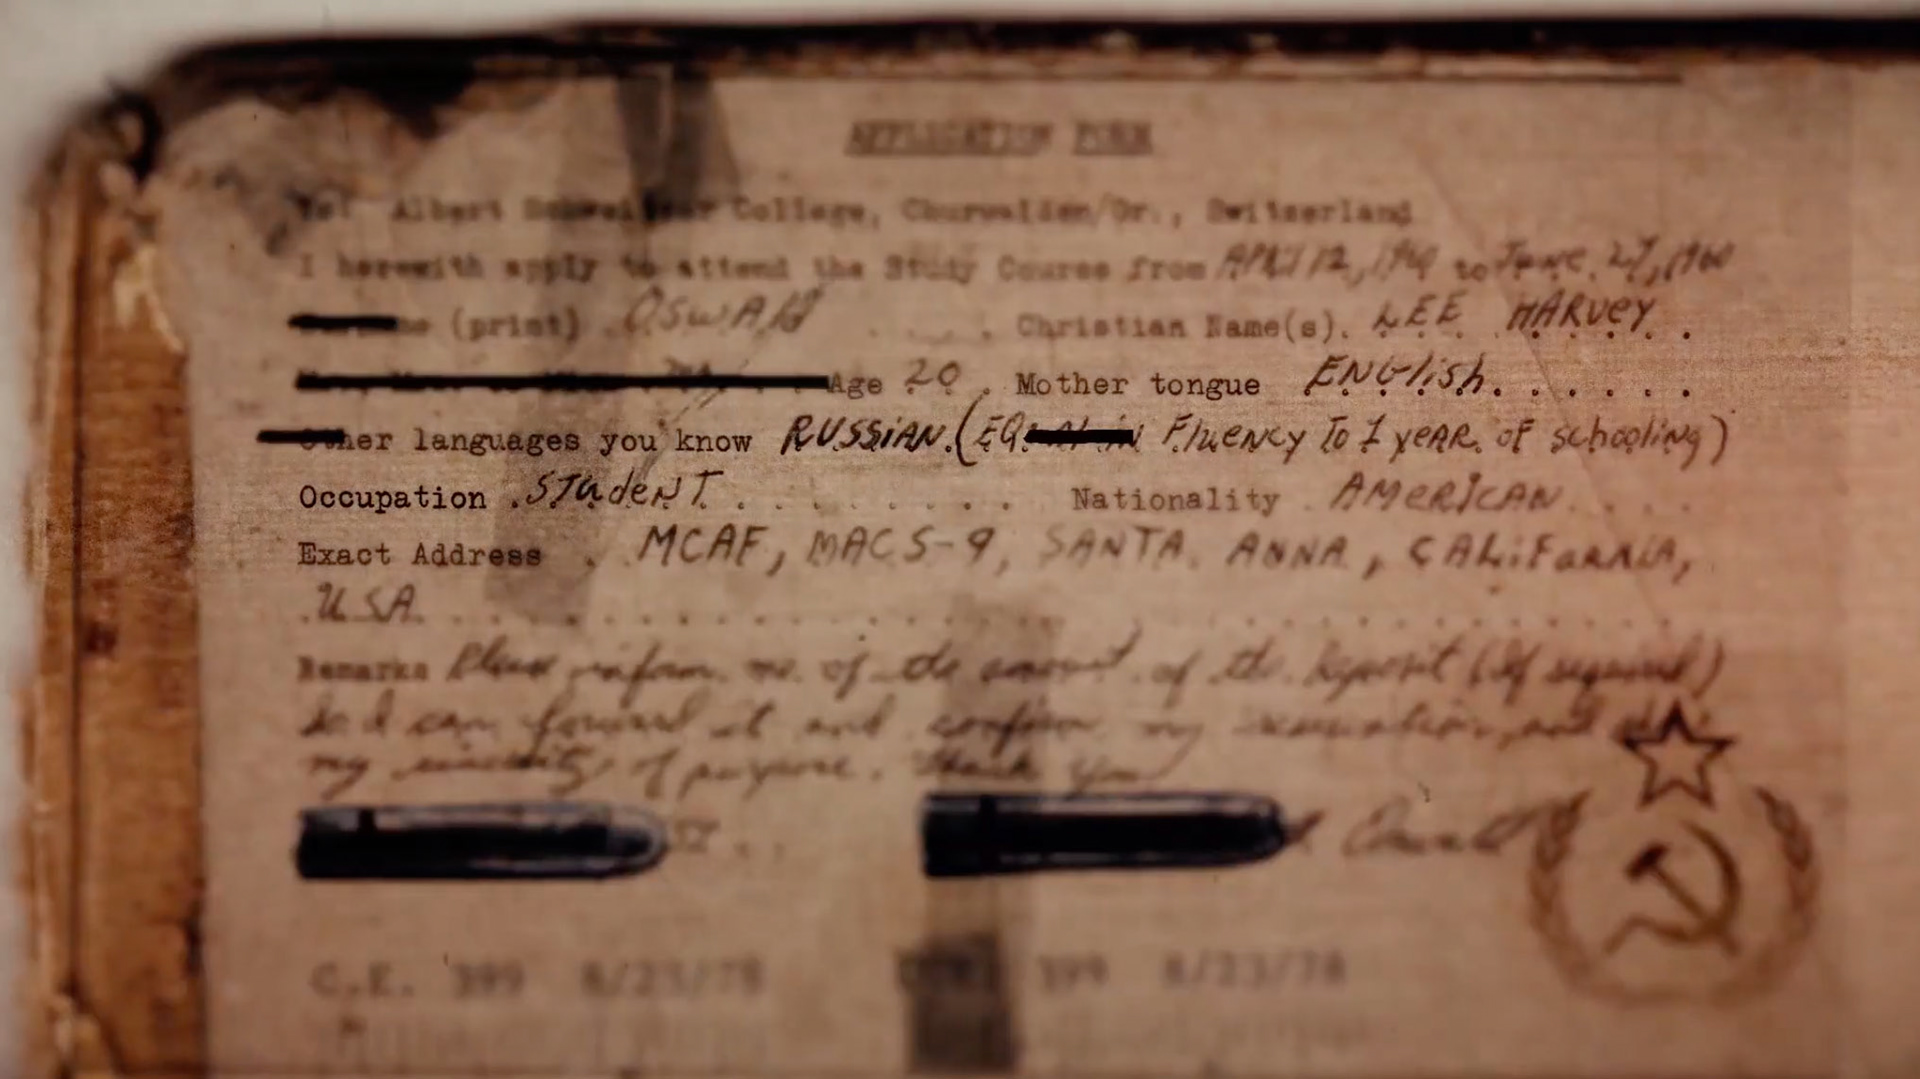 APPLICATION FORM
To: Albert Schweitzer College, Churwalden/Gr., Switzerland
I herewith apply to attend the Study Course from APRil 12, 1960 to June 27, 1960
(print) OSWAld Christian Name(s). LEE HARVEY
Age 20 Mother tongue ENGlish
Other languages you know RUSSiAN. (EQ Fluency To 1 yeAR. of schooling)
Occupation STudeNT Nationality AMeRICAN
Exact Address MCAF, MACS-9, SANTA. ANNA, CALiFoRNiA,
USA
Remarks Please inform me of the amount of the deposit (if required)
so I can forward it and confirm my and
my sincerity of purpose. Thank you
C.E. 399 8/23/78 399 8/23/78